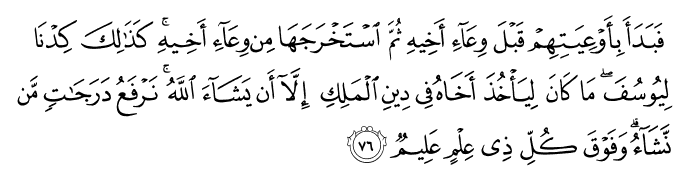 فَبَدَأَ بِأَوْعِيَتِهِمْ قَبْلَ وِعَآءِ أَخِيهِ ثُمَّ ٱسْتَخْرَجَهَا مِن وِعَآءِ أَخِيهِ ۚ كَذَٰلِكَ كِدْنَا
لِيُوسُفَ ۖ مَا كَانَ لِيَأْخُذَ أَخَاهُ فِى دِينِ ٱلْمَلِكِ إِلَّآ أَن يَشَآءَ ٱللَّهُ ۚ نَرْفَعُ دَرَجَٰتٍ مَّن
نَّشَآءُ ۗ وَفَوْقَ كُلِّ ذِى عِلْمٍ عَلِيمٌ ٧٦